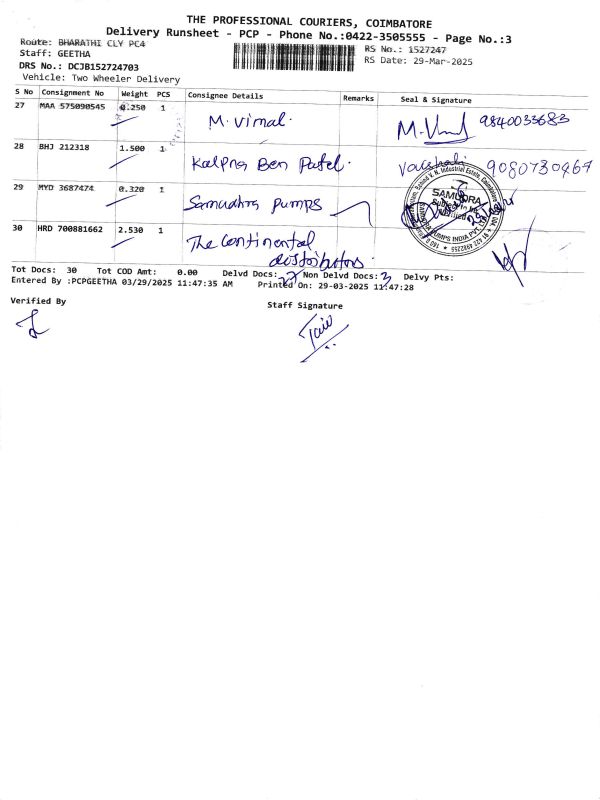 THE PROFESSIONAL COURIERS, COIMBATORE
Delivery Runsheet - PCP - Phone No.:0422-3505555 - Page No.:3
Route: BHARATHI CLY PC4
RS No.: 1527247
Staff: GEETHA
RS Date: 29-Mar-2025
DRS No.: DCJB152724703
Vehicle: Two Wheeler Delivery
S No Consignment No Weight PCS Consignee Details Remarks Seal & Signature
27 MAA 575090545 0.250 1 M. Vimal. 9840033683
28 BHJ 212318 1.500 1 Kalpna Ben Patel. Vaishali 9080730469
29 MYD 3687474 0.320 1 Samudhra Pumps
SAMUDRA
30 HRD 700881662 2.530 1 The Continental
distributors.
Tot Docs: 30 Tot COD Amt: 0.00 Delvd Docs: 27 Non Delvd Docs: 3 Delvy Pts:
Entered By :PCPGEETHA 03/29/2025 11:47:35 AM Printed On: 29-03-2025 11:47:28
Verified By
Staff Signature